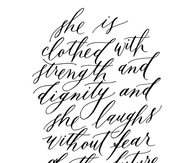 she is
clothed with
strength and
dignity and
she laughs
without fear
of the future